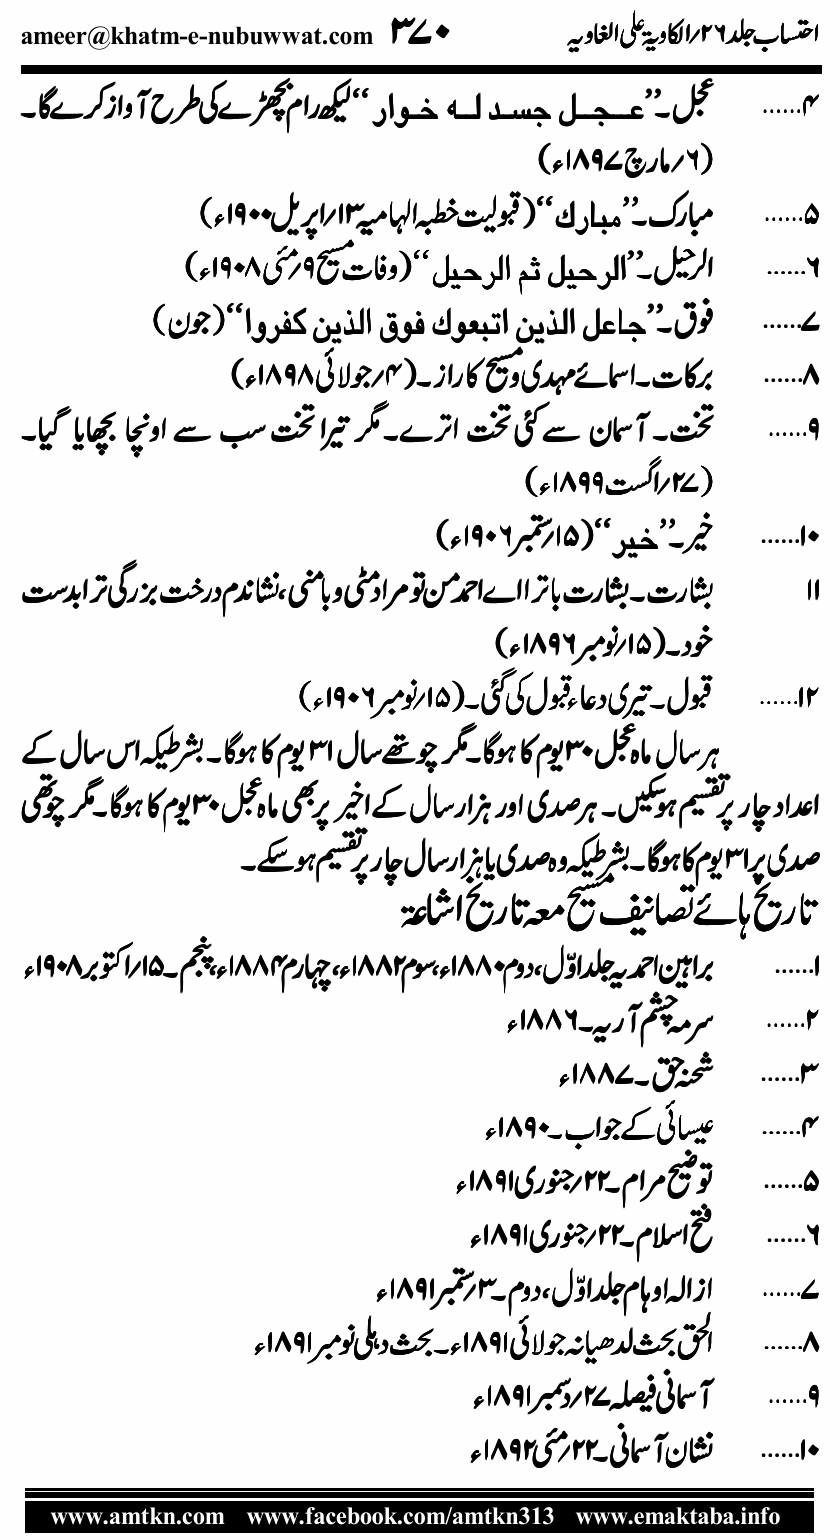 احتساب جلد۲۶/الکاویۃ علی الغاویہ ۳۷۰ ameer@khatm-e-nubuwwat.com
۴...... عجل۔ ’’عجل جسد له خوار‘‘ لیکھ رام بچھڑے کی طرح آواز کرے گا۔
(۶/مارچ ۱۸۹۷ء)
۵...... مبارک۔ ’’مبارك‘‘ (قبولیت خطبہ الہامیہ ۱۳/اپریل ۱۹۰۰ء)
۶...... الرحیل۔ ’’الرحیل ثم الرحیل‘‘ (وفات مسیح ۹/مئی ۱۹۰۸ء)
۷...... فوق۔ ’’جاعل الذین اتبعوك فوق الذین کفروا‘‘ (جون)
۸...... برکات۔ اسمائے مہدی ومسیح کا راز۔ (۴/جولائی ۱۸۹۸ء)
۹...... تخت۔ آسمان سے کئی تخت اترے۔ مگر تیرا تخت سب سے اونچا بچھایا گیا۔
(۲۷/اگست ۱۸۹۹ء)
۱۰...... خیر۔ ’’خیر‘‘ (۱۵/ستمبر ۱۹۰۶ء)
۱۱ بشارت۔ بشارت باترا اے احمد من تو مراد مٹی وبامنی، نشاندم درخت بزرگی ترابدست
خود۔ (۱۵/نومبر ۱۸۹۶ء)
۱۲...... قبول۔ تیری دعاء قبول کی گئی۔ (۱۵/نومبر ۱۹۰۶ء)
ہر سال ماہ عجل ۳۰ یوم کا ہوگا۔ مگر چوتھے سال ۳۱ یوم کا ہوگا۔ بشرطیکہ اس سال کے
اعداد چار پر تقسیم ہوسکیں۔ ہر صدی اور ہزار سال کے اخیر پر بھی ماہ عجل ۳۰ یوم کا ہوگا۔ مگر چوتھی
صدی پر ۳۱ یوم کا ہوگا۔ بشرطیکہ وہ صدی یا ہزار سال چار پر تقسیم ہوسکے۔
تاریخ ہائے تصانیف مسیح معہ تاریخ اشاعۃ
۱...... براہین احمدیہ جلد اوّل، دوم ۱۸۸۰ء، سوم ۱۸۸۲ء، چہارم ۱۸۸۴ء، پنجم۔ ۱۵/اکتوبر ۱۹۰۸ء
۲...... سرمہ چشم آریہ۔ ۱۸۸۶ء
۳...... شحنہ حق۔ ۱۸۸۷ء
۴...... عیسائی کے جواب۔ ۱۸۹۰ء
۵...... توضیح مرام۔ ۲۲/جنوری ۱۸۹۱ء
۶...... فتح اسلام۔ ۲۲/جنوری ۱۸۹۱ء
۷...... ازالہ اوہام جلد اوّل، دوم۔ ۳/ستمبر ۱۸۹۱ء
۸...... الحق بحث لدھیانہ جولائی ۱۸۹۱ء۔ بحث دہلی نومبر ۱۸۹۱ء
۹...... آسمانی فیصلہ ۲۷/دسمبر ۱۸۹۱ء
۱۰...... نشان آسمانی۔ ۲۲/مئی ۱۸۹۲ء
www.amtkn.com www.facebook.com/amtkn313 www.emaktaba.info